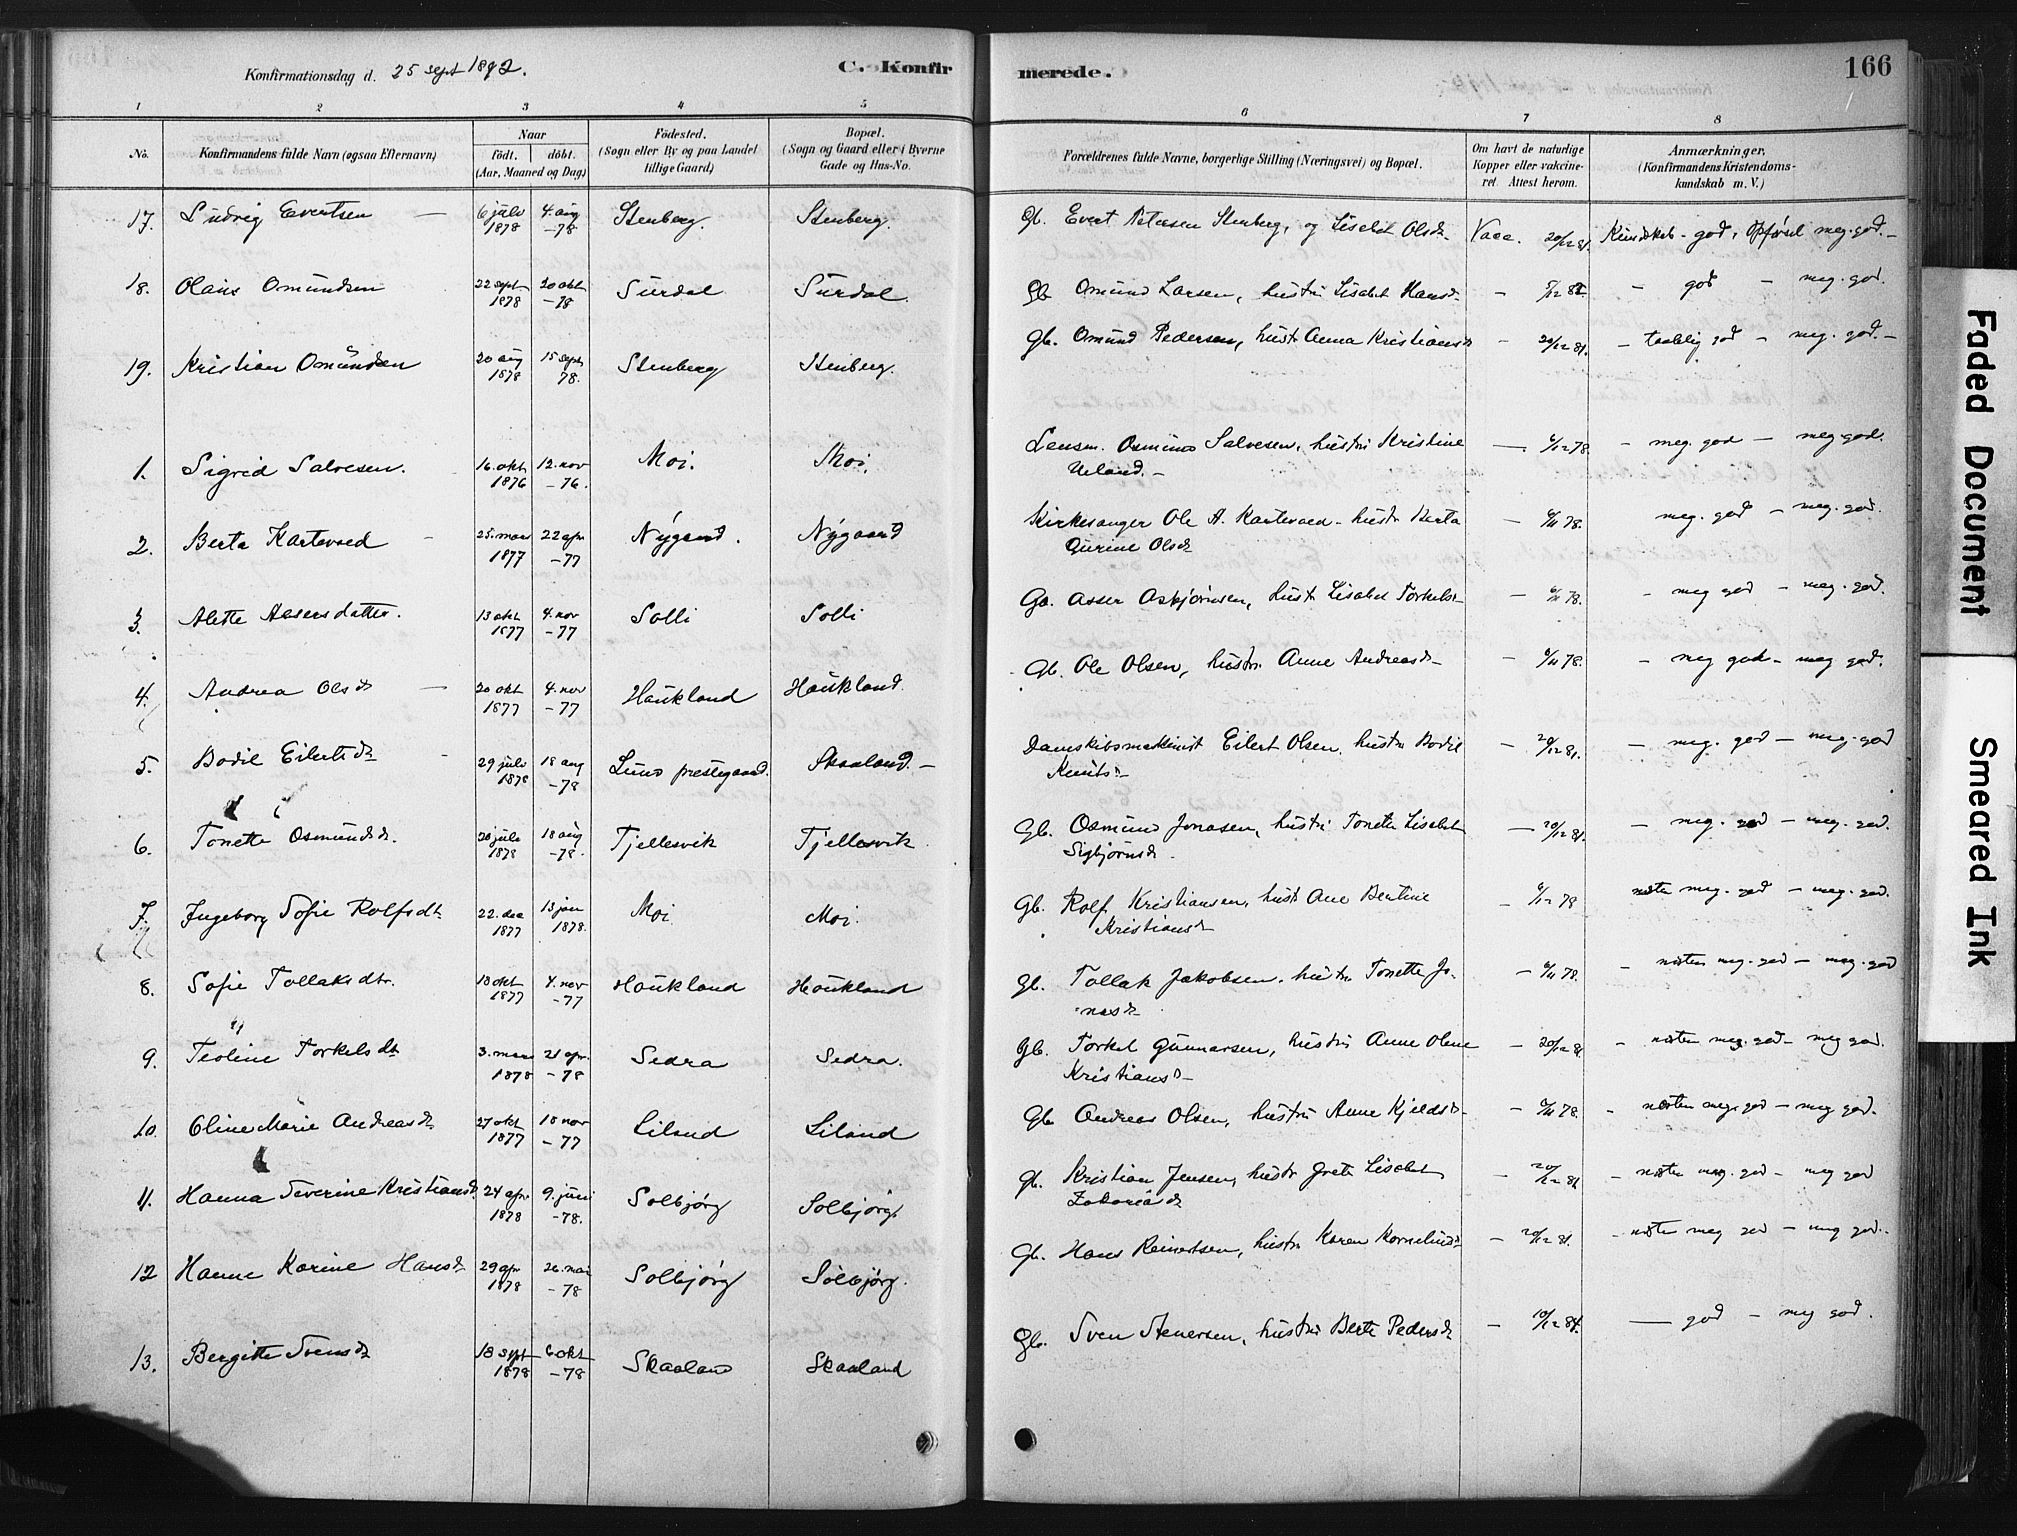 Konfirmationsdag d. 25 sept 1892.
C. Konfirmerede.
166
1 2 3 4 5 6 7 8
No.
Konfirmandens fulde Navn (ogsaa Efternavn)
Naar
födt. döbt.
(Aar, Maaned og Dag)
Födested.
(Sogn eller By og paa Landet
tillige Gaard)
Bopæl.
(Sogn og Gaard eller i Byerne
Gade og Hus-No.
Forældrenes fulde Navne, borgerlige Stilling (Næringsvei) og Bopæl.
Om havt de naturlige
Kopper eller vakcine-
ret. Attest herom.
Anmærkninger,
(Konfirmandens Kristendoms-
kundskab m. V.)
17. Ludvig Evertsen — 6 juli 1878 4. aug -78 Stenberg. Stenberg. Gb. Evert Petersen Stenberg, og Lisabet Olsdr. Vacc. 20/12 81. Kundskab - god, Opførsel meg. god. -
18. Olaus Omundsen 22 sept 1878 20 okt -78 Surdal Surdal. Gb Omund Larsen, hustru Lisabet Hansdr - god - meg. god.
19. Kristian Omundsen 20 aug 1878 15 sept 78. Stenberg Stenberg. Gb. Omund Pedersen, hustr Anna Kristiansdr - 20/12 81. - taalelig god - meg. god. -
1. Sigrid Salvesen. 16. okt 1876 12. nov -76. Moi. Moi. Lensm. Osmund Salvesen, hustru Kristine
Ueland. - — 6/12 78. - meg. god - meg. god.
2. Berta Kartevoed 25. mars 1877 22 apr -77 Nygaard. Nygaard Kirkesanger Ole A. Kartevoed - hustr Berta
Gurine Olsdr - 6/11 78. meg. god - meg. god.
3. Alette Assersdatter. 13 okt 1877 4. nov -77 Solli Solli Ga. Asser Asbjörnsen, hustr Lisabet Torkelsdr - 6/11 78. - meg god - meg. god.
4. Andrea Olsdr — 20 okt 1877 4. nov -77 Haukland Haukland. Gb. Ole Olsen, hustru Anne Andreasdr - 6/11 78. - meg god - meg god.
5. Bodil Eilertsdr 29 juli 1878 18 aug -78 Lund prestegaard. Skaaland. - Dampskibsmaskinist Eilert Olsen, hustru Bodil
Knutsdr - 20/12 81. - meg. god - meg. god
6. Tonette Osmundsdr. 20 juli 1878 18 aug -78. Tjellesvik Tjellesvik. Gb. Osmund Jonasen, hustru Tonette Lisabet
Sigbjörnsdr. - 20/12 81. - meg. god - meg. god.
7. Ingeborg Sofie Rolfsdtr 22. dec 1877 13 jan 1878. Moi Moi. Gb. Rolf Kristiansen, hustr Ane Bentine
Kristiansdr - 6/12 78 næsten meg. god - meg. god.
8. Sofie Tollaksdtr. 18 okt 1877 4. nov -77 Haukland Haukland Gb. Tollak Jakobsen, hustru Tonette Jo-
nasdr - 6/11 78. - næsten meg. god - meg. god
9. Teoline Torkelsdtr 3. mars 1878 21 apr. -78 Sedra Sedra. Gb. Torkel Gunnarsen, hustru Anne Olene
Kristiansdr - 20/12 81 - næsten meg. god - meg god.
10. Oline Marie Andreasdr 27 okt 1877 18 nov -77 Liland Liland Gb Andreas Olsen, hustru Anne Kjeldsdr - 6/11 78. - næsten meg. god - meg god.
11. Hanna Severine Kristiansdr 24 apr 1878 9. juni -78. Solbjørg Solbjørg. Gb. Kristian Jensen, hustr Grete Lisabet
Zakariasdr - 20/12 81 - næsten meg. god - meg god
12 Hanne Karine Hansdr 29 apr 1878 26. mai -78 Solbjørg Solbjørg. Gb. Hans Reinertsen, hustru Karen Korneliusdr - 20/12 81. - næsten meg god - meg god.
13. Bergitte Svensdr 18 sept 1878 6 okt -78 Skaaland Skaaland Gb. Sven Stenersen, hustru Berte Pedersdr - 10/12 84. — god - meg god.
Faded Document
Smeared Ink